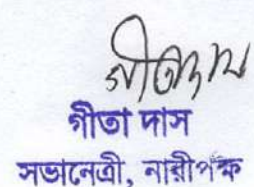 গীতা দাস
গীতা দাস
সভানেত্রী, নারীপক্ষ